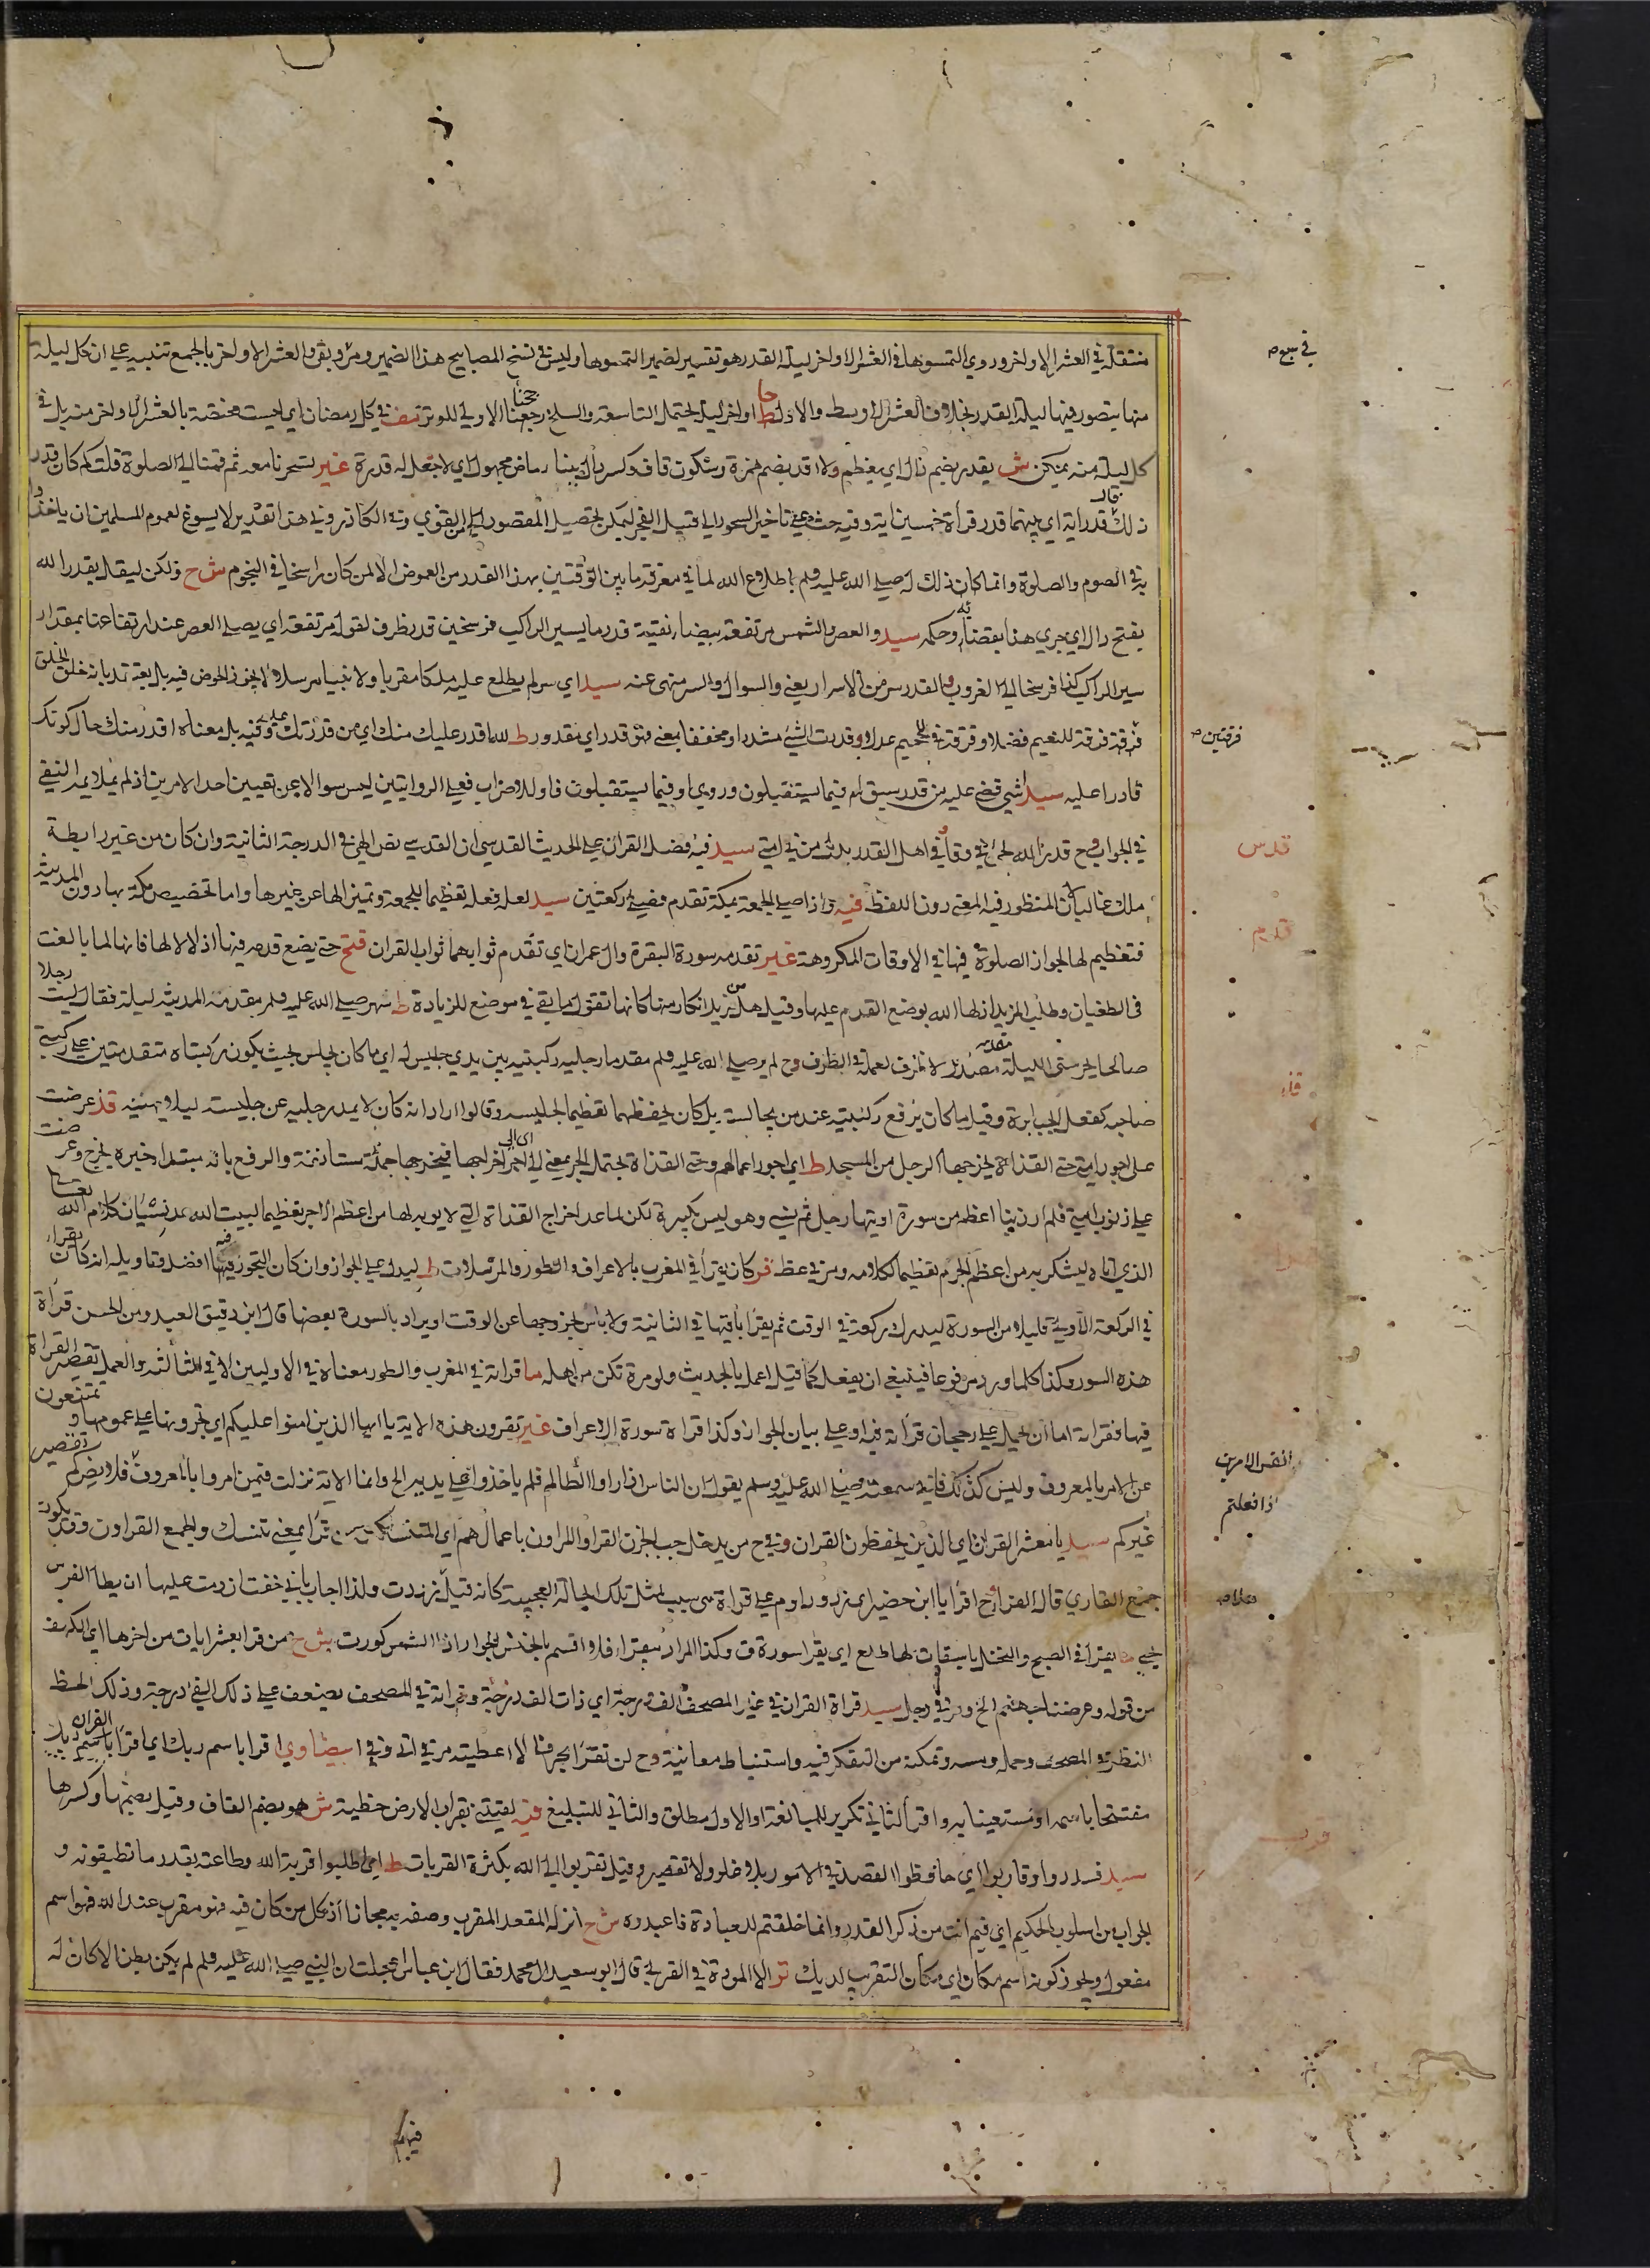 منتقلة في العشر الاواخر وروي التمسوها في العشر الاواخر ليلة القدر هو تفسير لضمير التمسوها وليس في نسخ المصابيح هذا الضمير ومر وبقي والعشر الاواخر بالجمع تنبيه على ان كل ليلة
منها يتصور فيها ليلة القدر بخلاف العشر الاوسط والاول ط او اخر ليلة يحتمل التاسعة والسلخ رجعنا الاولى للوتر تنف في كل رمضان اي ليست مختصة بالعشر الاواخر منه بل في
كل ليلة منه يمكن ش يقدر بضم دال اي يعظم ولا اقد بضم همزة وسكون قاف وكسر دال ببناء ماض مجهول اي لا تجعل له قدرة غير تسحرنا معه ثم قمنا الى الصلوة قلت كم كان قدر
ذلك قال قدر اية اي بينهما قدر قرأة خمسين اية وفيه حث على تاخير السحور الى قبيل الفجر ليمكن تحصيل المقصود التقوي وفي الكاذروني هذا تقدير لا يسوغ لعموم المسلمين ان ياخذوا
به في الصوم والصلوة وانما كان ذلك له صلى الله عليه وسلم باطلاع الله لما في معرفة ما بين الوقتين بهذا القدر من الغموض الا لمن كان راسخا في النجوم ش ح ولكن ليقل بقدر الله
بفتح دال اي جري هذا بقضائه وحكمه سيد والعصر والشمس مرتفعة بيضاء نقية قدر ما يسير الراكب فرسخين قدر ظرف لقوله مرتفعة اي يصلي العصر عند ارتفاعها بمقدار
سير الراكب كذا فرسخا الى الغروب والقدر سر من الاسرار يعني والسوال والسر منهى عنه سيد اي سر لم يطلع عليه ملكا مقربا ولا نبيا مرسلا ولا يجوز الخوض فيه بل يعتقد بانه خلق الخلق
فرقة فرقة للنعيم فضلا وفرقة للجحيم عدلا وقدرت الشيء مشددا ومخففا بمعنى فهو قدر اي مقدور ط لله اقدر عليك منك اي من قدرتك عليه وفيه بل معناه اقدر منك حال كونك
قادرا عليه سيد اشي قضي عليه من قدر سبق ام فيما يستقبلون وروي او فيما يستقبلون فاو للاضراب فعلى الروايتين ليس سوالا عن تعيين احد الامرين اذ لم يلايمه النفي
في الجواب
ملك غالبا المنظور فيه المعنى دون اللفظ فيه واذا صلى الجمعة بمكة تقدم فصلى ركعتين سيد لعله فعله تعظيما للجمعة وتمييزا لها عن غيرها واما تخصيص مكة بها دون المدينة
فتعظيم لها لجواز الصلوة فيها في الاوقات المكروهة غير تقدمه سورة البقرة وال عمران اي تقدم ثوابهما ثواب القران فتح حتى يضع قدمه فيها اذلالا لها فانها لما بالغت
في الطغيان وطلب المزيد اذلها الله بوضع القدم عليها وقيل هل من مزيد انكار منها كانها تقول ما بقي في موضع للزيادة ط سهر صلى الله عليه وسلم مقدمه المدينة ليلة فقال ليت رجلا
صالحا يحرسني الليلة مقدمه مصدر لا ظرف لعمله في الظرف وح لم ير صلى الله عليه وسلم مقدما رجليه ركبتيه بين يدي جليس له اي ما كان يجلس بحيث يكون ركبتاه متقدمتين على ركبتي
صاحبه كفعل الجبابرة وقيل ما كان يرفع ركبتيه عند من يجالسه بل كان يخفظهما تعظيما لجليسه وقالوا اراد انه كان لا يمد رجليه عن جليسه ليلا يهينه قذ عرضت
على اجور امتي حتى القذاة يخرجها الرجل من المسجد ط اي اجور اعمالهم وحتى القذاة يحتمل الجر بمعنى الى اي الى اجر اخراجها فيخرجها جملة مستانفة والرفع بانه مبتدا خبره يخرج وعرضت
على ذنوب امتي فلم ار ذنبا اعظم من سورة اوتيها رجل ثم نسي وهو ليس بكبيرة لكن لما عد اخراج القذاة التي لا يوبه لها من اعظم الاجر تعظيما لبيت الله عد نسيان كلام الله تعالى
الذي اتاه ليشكر به من اعظم الجرم تعظيما لكلامه ومر في عظ قر كان يقرأ في المغرب بالاعراف والطور والمرسلات ط ليدل على الجواز وان كان التجوز فيه افضل وتاويله انه كان يقرأ
في الركعة الاولى قليلا من السورة ليدرك ركعة في الوقت ثم يقرأ باقيها في الثانية ولا باس بخروجها عن الوقت او يراد بالسورة بعضها قال ابن دقيق العيد ومن الحسن قرأة
هذه السور وكذا كلما ورد مرفوعا فينبغي ان يفعل كما قيل اعمل بالحديث ولو مرة تكن من اهله ما قراته في المغرب والطور معناه في الاوليين لا في الثالثة والعمل تقصير القرأة
فيها فقراته اما ان يحمل على رجحان قراته فيه او على بيان الجواز وكذا قراة سورة الاعراف غير تقرون هذه الاية يا ايها الذين امنوا عليكم اي تجرونها على عمومها وتمتنعون
عن الامر بالمعروف وليس كذلك فاني سمعته صلى الله عليه وسلم يقول ان الناس اذا راوا الظالم فلم ياخذوا على يديه الخ وانما الاية نزلت فيمن امروا بالمعروف فلا يضركم تقصير
غيركم سيد يا معشر القران اي الذين يحفظون القران وفي ح من يدخل جب الحزن القراء المراون باعمالهم اي المتنسكين من تقرأ بمعنى تنسك والجمع القراون وقد يكون
جمع القاري قال الفراء ح اقرا يا ابن حضير اي زد وداوم على قراة هي سبب لمثل تلك الحالة العجيبة كانه قيل هلا زدت ولذا اجاب باني خفت ان زدت عليها ان يطأ الفرس
يحيى يقرأ في الصبح والنخل باسقات لها طلع اي يقرا سورة ق وكذا المراد بيقرا فلا اقسم بالخنس الجوار اذا الشمس كورت ش ح من قرا بعشر ايات من اخرها اي الكهف
من قوله وعرضنا جهنم الخ ومر في رجل سيد قراة القران في غير المصحف الف درجة اي ذات الف درجة وقراته في المصحف يضعف على ذلك الفي درجة وذلك لحظ
النظر في المصحف وحمله ومسه وتمكنه من التفكر فيه واستنباط معانيه وح لن تقرا بحرف الا اعطيته مر في اتى وفي بيضاوي اقرا باسم ربك اي اقرا القران
مفتتحا باسمه او مستعينا به واقرا الثاني تكرير للمبالغة او الاول مطلق والثاني للتبليغ فيه لقيتني بقراب الارض خطيئة ش هو بضم القاف وقيل بضمها وكسرها
سيد فسددوا وقاربوا اي حافظوا القصد في الامور بلا غلو ولا تقصير وقيل تقربوا الى الله بكثرة القربات ط اي اطلبوا قربة الله وطاعته بقدر ما تطيقونه و
الجواب من اسلوب الحكيم اي فيم انت من ذكر القدر وانما خلقتم للعبادة فاعبدوه ش ح انزله المقعد المقرب وصفه به مجازا اذ كل من كان فيه فهو مقرب عند الله فهو اسم
مفعول ويجوز كونه اسم مكان اي مكان التقرب لديك تو الا المودة في القربى قال ابو سعيد ال محمد فقال ابن عباس عجلت ان النبي صلى الله عليه وسلم لم يكن بطن الا كان له
في سبع
فرقتين
قدس
قدم
قذا
قرا
اذا فعلتم
قرب